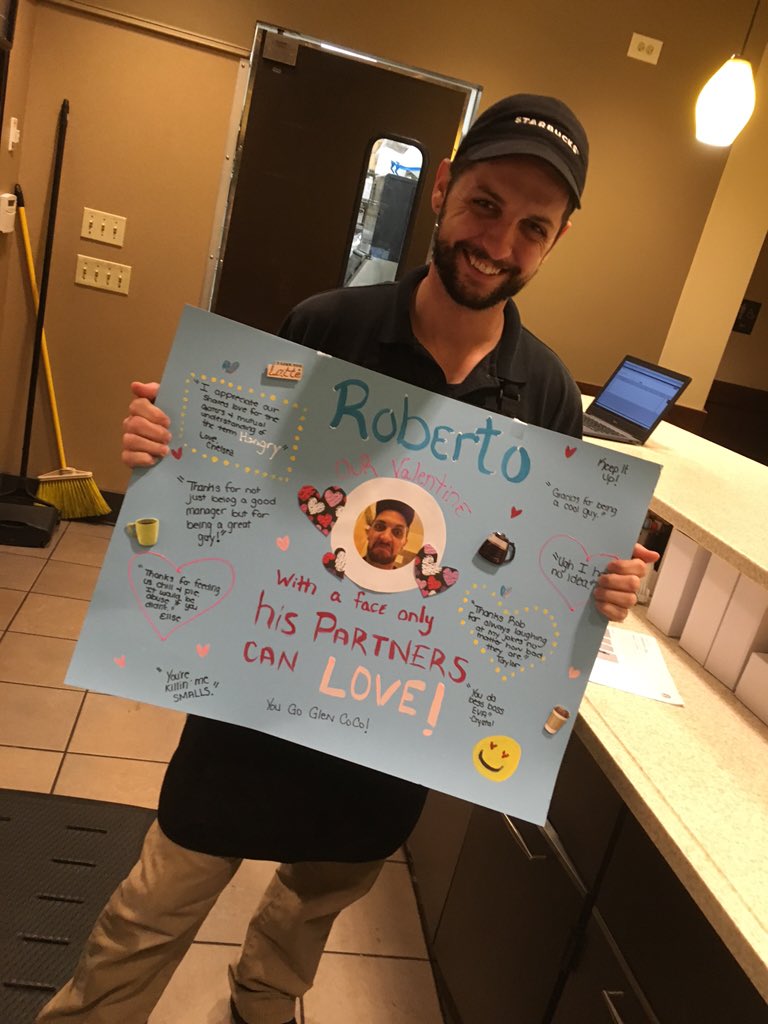 STARBUCKS
Latte
Roberto
OUR Valentine
With a face only
his PARTNERS
CAN LOVE!
You Go Glen CoCo!
"I appreciate our
shared love for the
and mutual
understanding of
the term Hangry"
Love,
Chelsea
"Thanks for not
just being a good
manager but for
being a great
guy!"
"Thanks for feeding
us chili & pie.
It would be
abuse if you
didn't."
Elise
"You're
killin' me
SMALLS."
Keep It
Up!
"Gracias for being
a cool guy."
"Ugh I h
no idea
"Thanks Rob
for always laughing
at my jokes no
matter how bad
they are"
Taylor
"You da
bess boss
EVA"
-Crystal